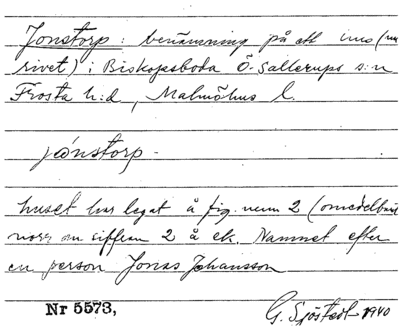 Jonstorp: benämning på ett hus (nu
rivet) i Biskopsboda Ö. Sallerups s:n
Frosta h:d, Malmöhus l.
jönstorp -
huset har legat å fig. num 2 (omedelbart
norr om siffran 2 å ek. Namnet efter
en person Jonas Johansson
Nr 5573,
G. Sjöstedt 1940